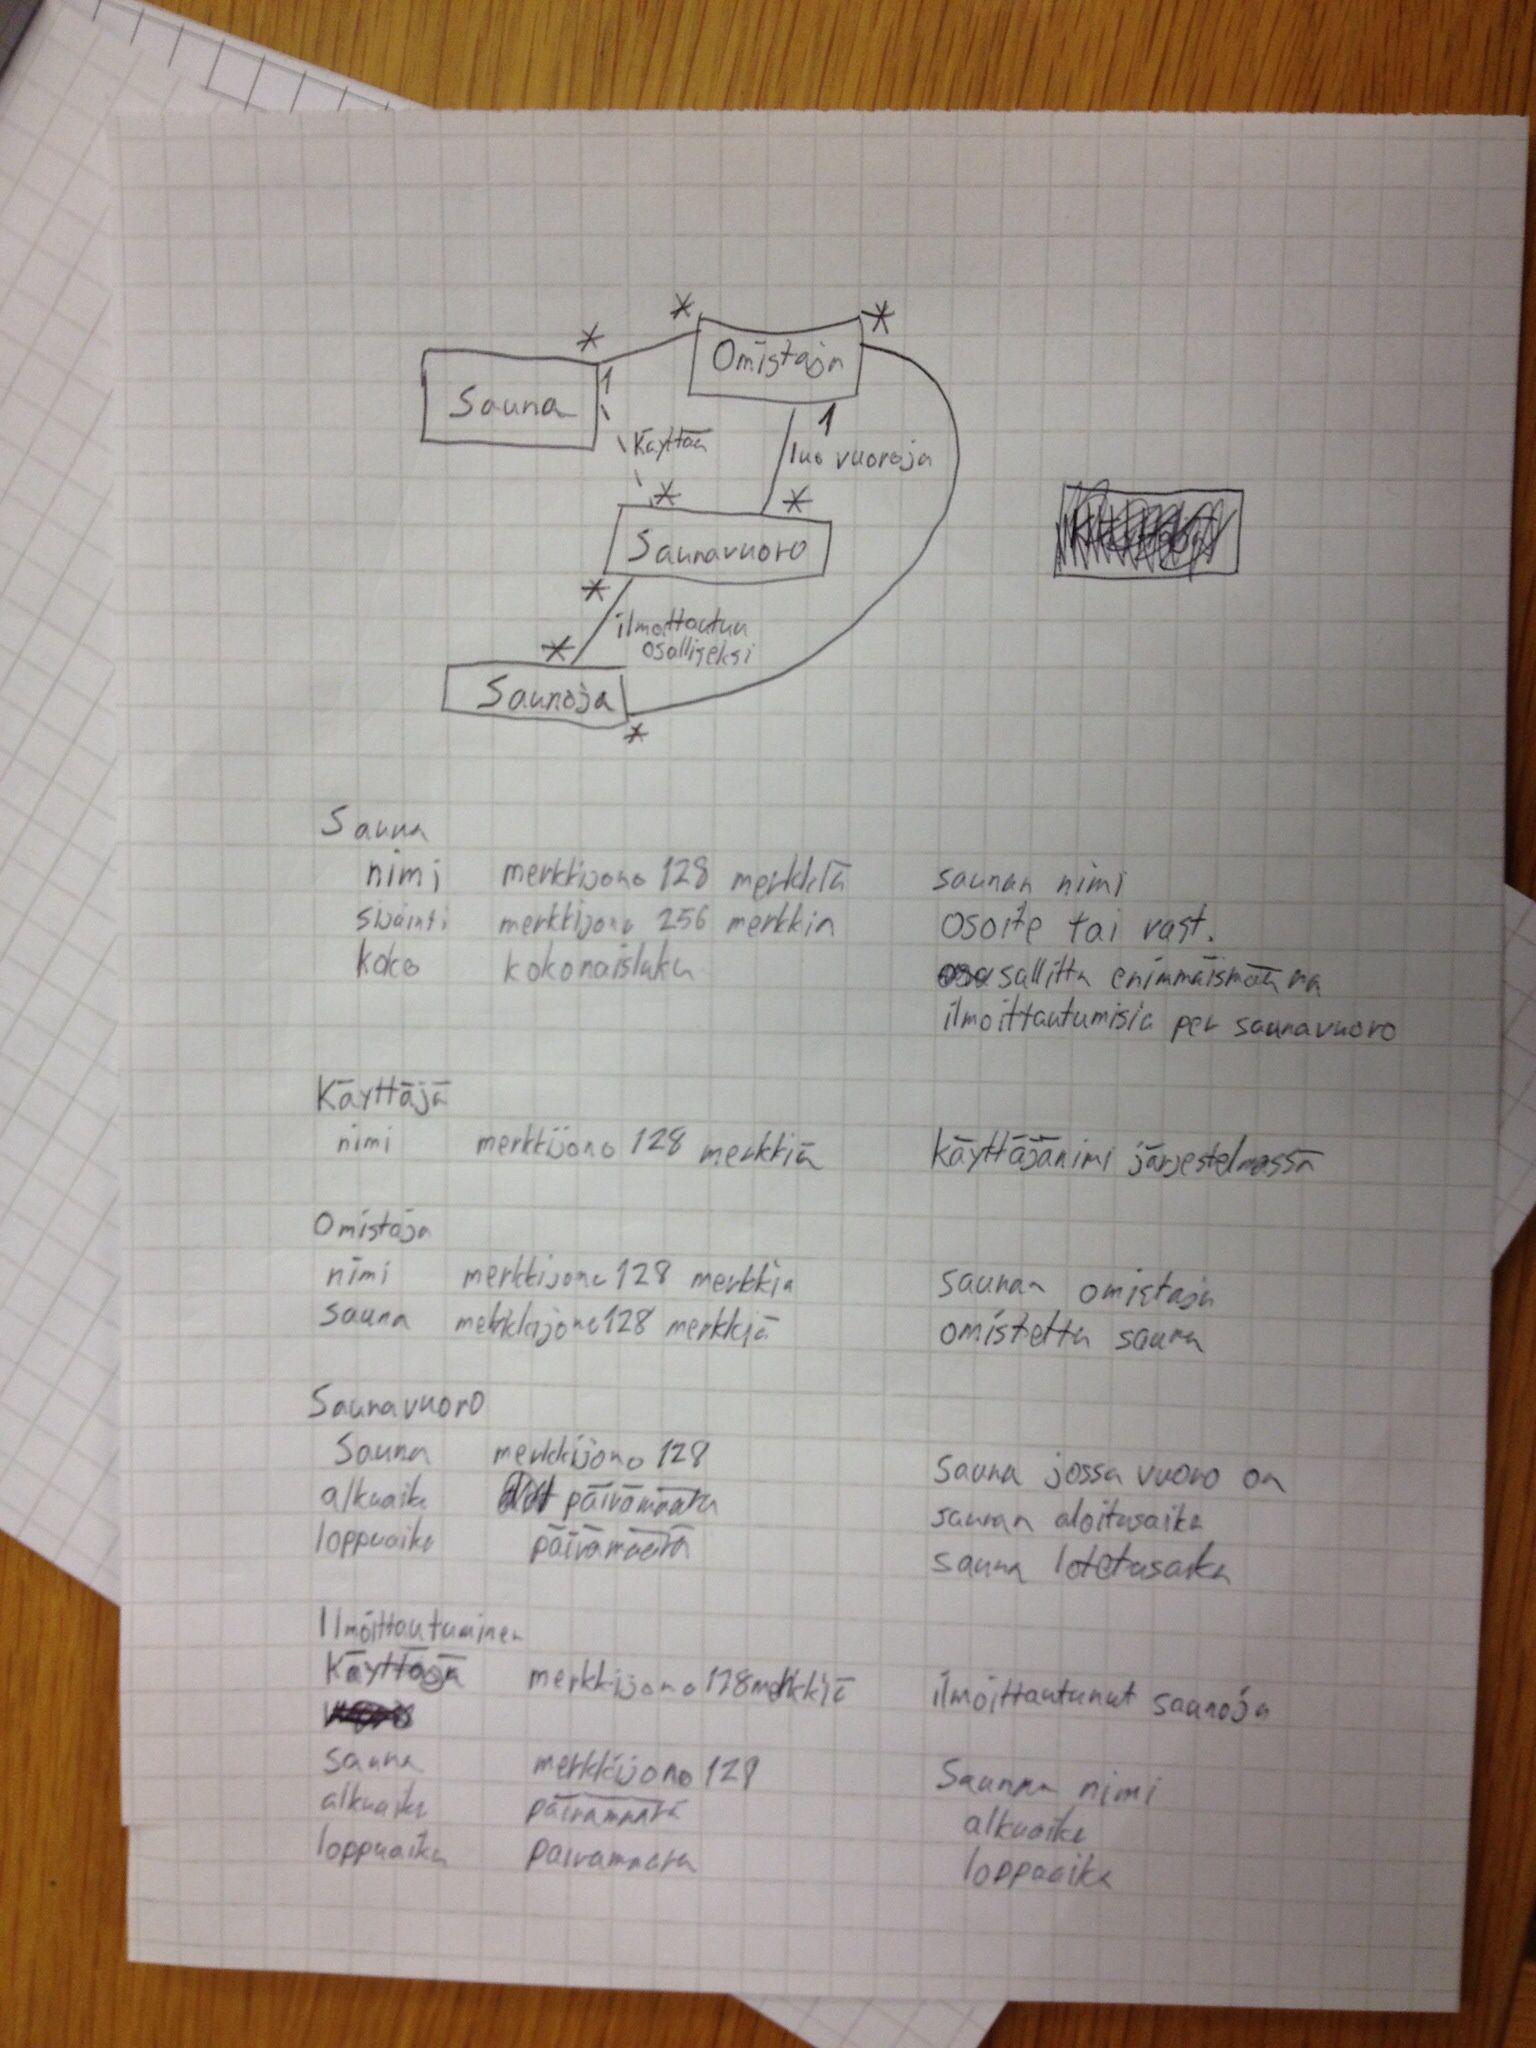 * * *
Sauna 1 Omistaja
Käyttää 1 luo vuoroja
* *
Saunavuoro
*
ilmoittautuu
* osalliseksi
Saunoja
*
Sauna
nimi merkkijono 128 merkkiä saunan nimi
sijainti merkkijono 256 merkkiä osoite tai vast.
koko kokonaisluku sallittu enimmäismäärä
ilmoittautumisia per saunavuoro
Käyttäjä
nimi merkkijono 128 merkkiä käyttäjänimi järjestelmässä
Omistaja
nimi merkkijono 128 merkkiä saunan omistaja
sauna merkkijono 128 merkkiä omistettu sauna
Saunavuoro
Sauna merkkijono 128 Sauna jossa vuoro on
alkuaika päivämäärä saunan aloitusaika
loppuaika päivämäärä sauna lotetusaika
Ilmoittautuminen
Käyttäjä merkkijono 128 merkkiä ilmoittautunut saunoja
sauna merkkijono 128 Saunan nimi
alkuaika päivämäärä alkuaika
loppuaika päivämäärä loppuaika